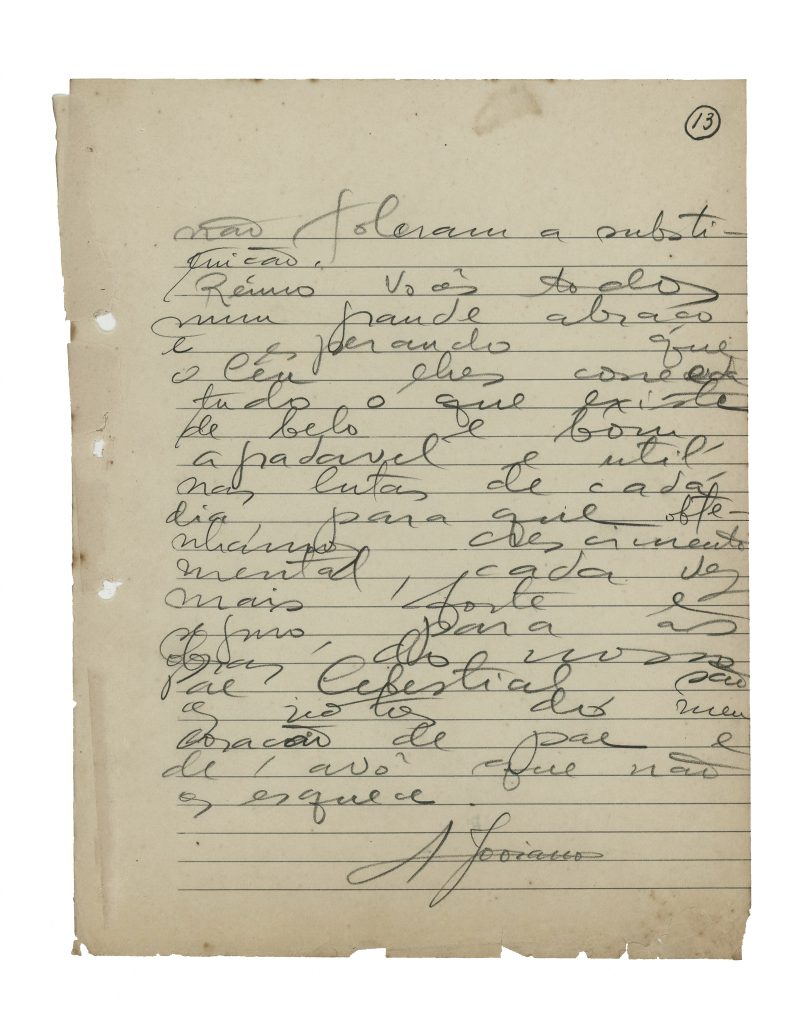 13
não toleram a substi-
tuição.
Reúno vocês todos
num grande abraço
e esperando que
o Céu lhes conceda
tudo o que existe
de belo e bom
agradavel e util
nas lutas de cada
dia, para que obte-
nhamos crescimento
mental, cada vez
mais forte e
seguro, para as
obras do nosso
pae Celestial são
os votos do meu
coração de pae e
de avô que não
os esquece.
A Joviano